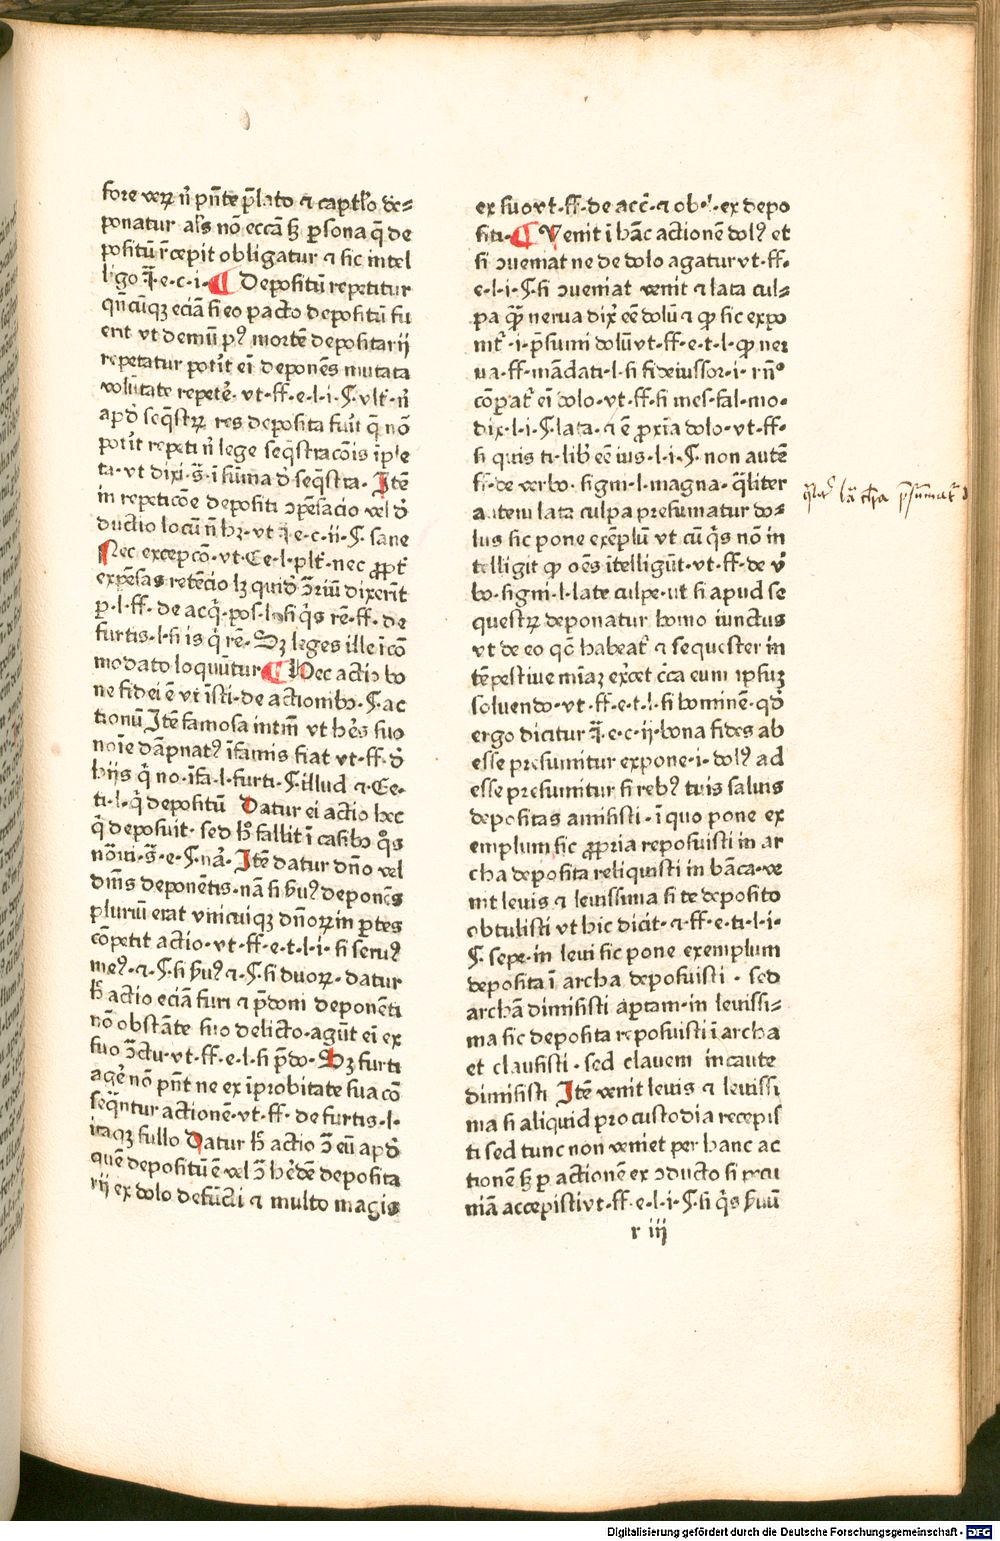 fore verꝝ ñ pñte p̃lato ⁊ captl̃o de⸗
ponatur al's nõ eccã ſꝫ pſona q̃ de
poſitũ r̃cepit obligatur ⁊ ſic intel
ligo q̃·e·c·i· ¶ Depoſitũ repetitur
qñcũqꝫ eciã ſi eo pacto depoſitũ fu
erit vt demũ pꝰ mortẽ depoſitarij
repetatur poтit eĩ deponẽs mutata
volũtate repetẽ· vt·ff·e·l·i·§·vlt̃· ñ
apď ſeq̃ſtrꝝ res depoſita fuĩt q̃ nõ
potĩt repeti ñ lege ſeq̃ſtracõis ĩple
ta·vt dixi·s̃·ĩ ſũma ď ſeq̃ſtra· Itẽ
in repeticõe depoſiti ↄpẽſacio vel ď
ductio locũ ñ hꝫ·vt q̃·e·c·ii·§·ſane
Nec excepcõ·vt·C·e·l·plt̃·nec ꝓpt̃
expẽſas retẽcio lꝫ quid̃ ↄ̃riũ dixerĩt
p·l·ff·de acq̃·poſ·l·ſi q̃s rẽ·ff·de
furtis·l·ſi is q̃ rẽ· Sꝫ leges ille ĩ cõ
modato loquũtur ¶ Hec actio bo
ne fidei ẽ vt ĩſti·de actionibꝰ·§·ac
tionũ Itẽ famoſa intm̃ vt hẽs ſuo
noĩe dãpnatꝰ ĩfamis fiat vt·ff·ď
hijs q̃ no·ĩfa·l·furti·§·illud ⁊·C·e·
ti·l·q̃ depoſitũ Datur ei actio hec
q̃ depoſuit·ſed h̃ fallit ĩ caſibꝰ q̃s
nõĩui·s̃·e·§·nã· Itẽ datur dño vel
dñis deponẽtis·nã ſi ẽuꝰ deponẽs
pluriũ erat vnicuiqꝫ dñorꝝ in ptes
cõpetit actio·vt·ff·e·t·l·i·ſi ſeruꝰ
meꝰ·⁊·§·ſi ẽuꝰ ⁊·§·ſi duorꝝ·datur
h̃ actio eciã furi ⁊ p̃doni deponẽti
nõ obſtãte ſuo delicto·agũt eĩ ex
ſuo ↄ̃ctu·vt·ff·e·l·ſi p̃do· Sꝫ furti
agẽ nõ pñt ne ex ĩprobitate ſua cõ
ſeq̃ntur actionẽ·vt·ff·de furtis·l·
itaqꝫ fullo Datur h̃ actio ↄ̃ eũ apď
quẽ depoſitũ ẽ vel ↄ̃ hẽdẽ depoſita
rij ex dolo defũcti ⁊ multo magis
ex ſuo vt·ff·de acc̃·⁊ ob·l·ex depo
ſiti· ¶ Venit ĩ hãc actionẽ dolꝰ et
ſi ↄueniat ne de dolo agatur vt·ff·
e·l·i·§·ſi ↄueniat venit ⁊ lata cul⸗
pa q̃ꝓ nerua dix̃ eẽ dolũ ⁊ ꝙ ſic expo
nit̃·i·p̃ſumi dolũ vt·ff·e·t·l·ꝙ ner
ua·ff·mãdati·l·ſi fideiuſſor·i·rñº
cõpat̃ eĩ dolo·vt·ff·ſi meſ·fal·mo·
dix·l·i·§·lata·⁊ ẽ ꝓxĩa dolo·vt·ff·
ſi quis ti·lib̃ eẽ ius·l·i·§·non autẽ
ff·de verbo·ſigni·l·magna·q̃liter
autem lata culpa preſumatur do⸗
lus ſic pone exẽplũ vt cũ q̃s nõ in
telligit ꝙ oẽs ĩtelligũt·vt·ff·de v̓
bo·ſigni·l·late culpe·ut ſi apud ſe
queſtrꝝ deponatur homo iunctus
vt de eo qõ habeat̃ ⁊ ſequeſter in
tẽpeſtiue mĩaꝫ exc̃et c̃ca eum ipſuꝫ
ſoluendo·vt·ff·e·t·l·ſi hominẽ·qď
ergo dicitur q̃·e·c·ij·bona fides ab
eſſe preſumitur expone·i·dolꝰ ad
eſſe preſumitur ſi rebꝰ tuis ſaluis
depoſitas amiſiſti·ĩ quo pone ex
emplum ſic ꝓpria repoſuiſti in ar
cha depoſita reliquiſti in bãca·ve
nit leuis ⁊ leuiſſima ſi te depoſito
obtuliſti vt hic dicit·⁊·ff·e·ti·l·i·
§·ſepe·in leui ſic pone exemplum
depoſita ĩ archa depoſuiſti·ſed
archã dimiſiſti aptam·in leuiſſi⸗
ma ſic depoſita repoſuiſti ĩ archa
et clauſiſti·ſed clauem incaute
dimiſiſti Itẽ venit leuis ⁊ leuiſſi
ma ſi aliquid pro cuſtodia recepiſ
ti sed tunc non veniet per hanc ac
tionẽ ſꝫ p actionẽ ex ↄducto ſi pecu
niã accepiſti vt·ff·e·l·i·§·ſi q̃s ẽuũ
r iij
Digitalisierung gefördert durch die Deutsche Forschungsgemeinschaft - DFG